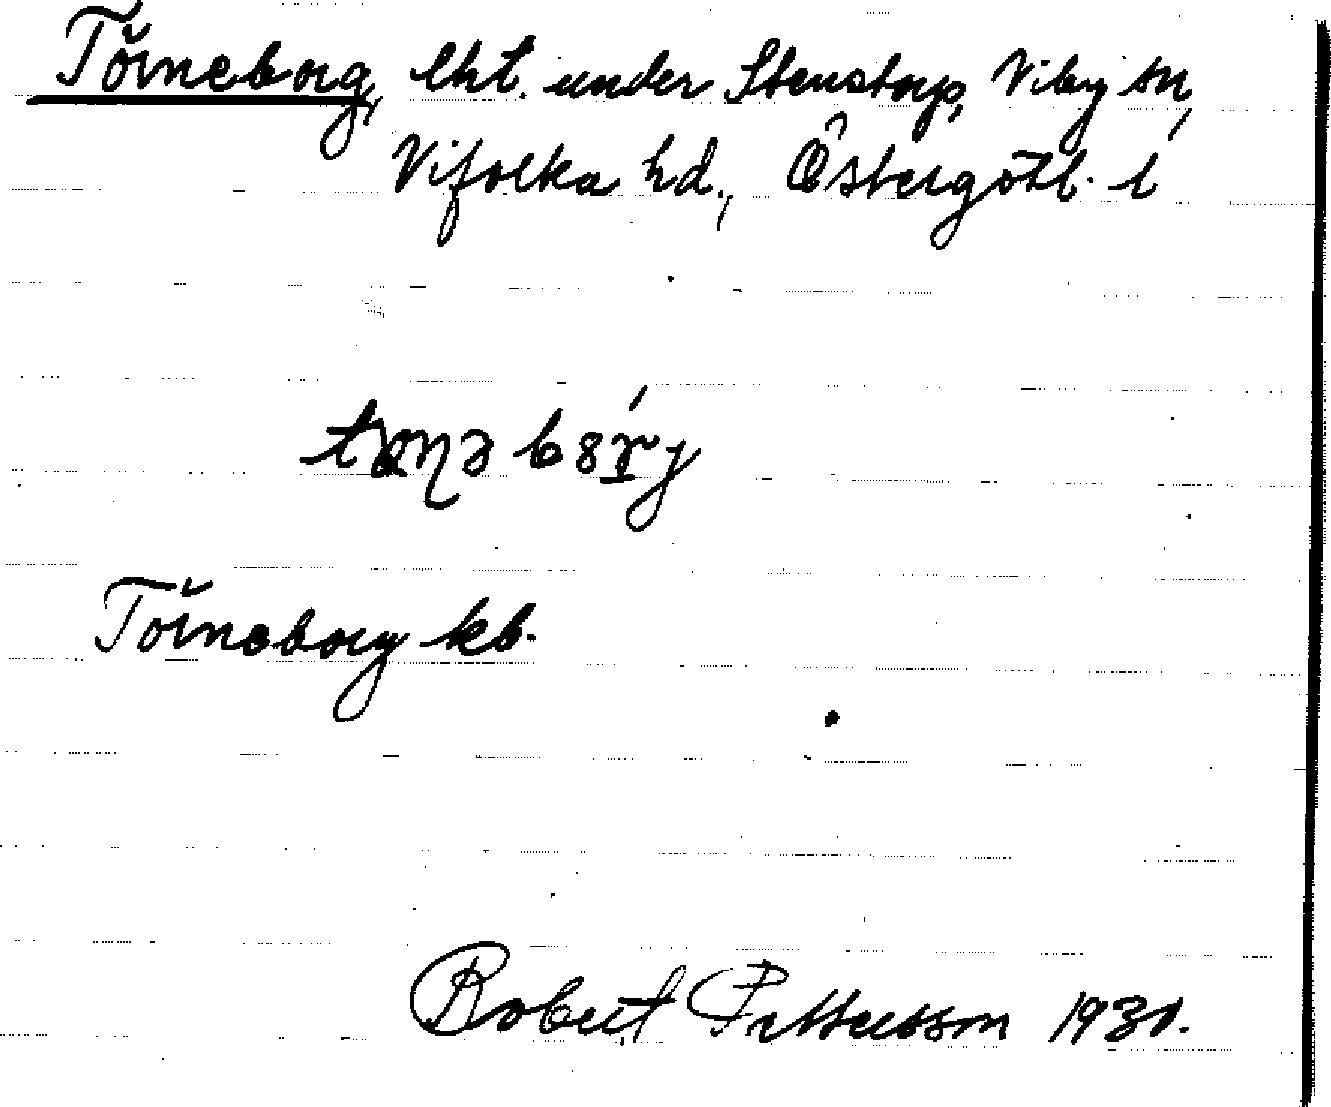 Törneborg, lht. under Stenstorp, Viby sn,
Vifolka hd., Östergötl. l
Törneborg kb.
Robert Pettersson 1930.